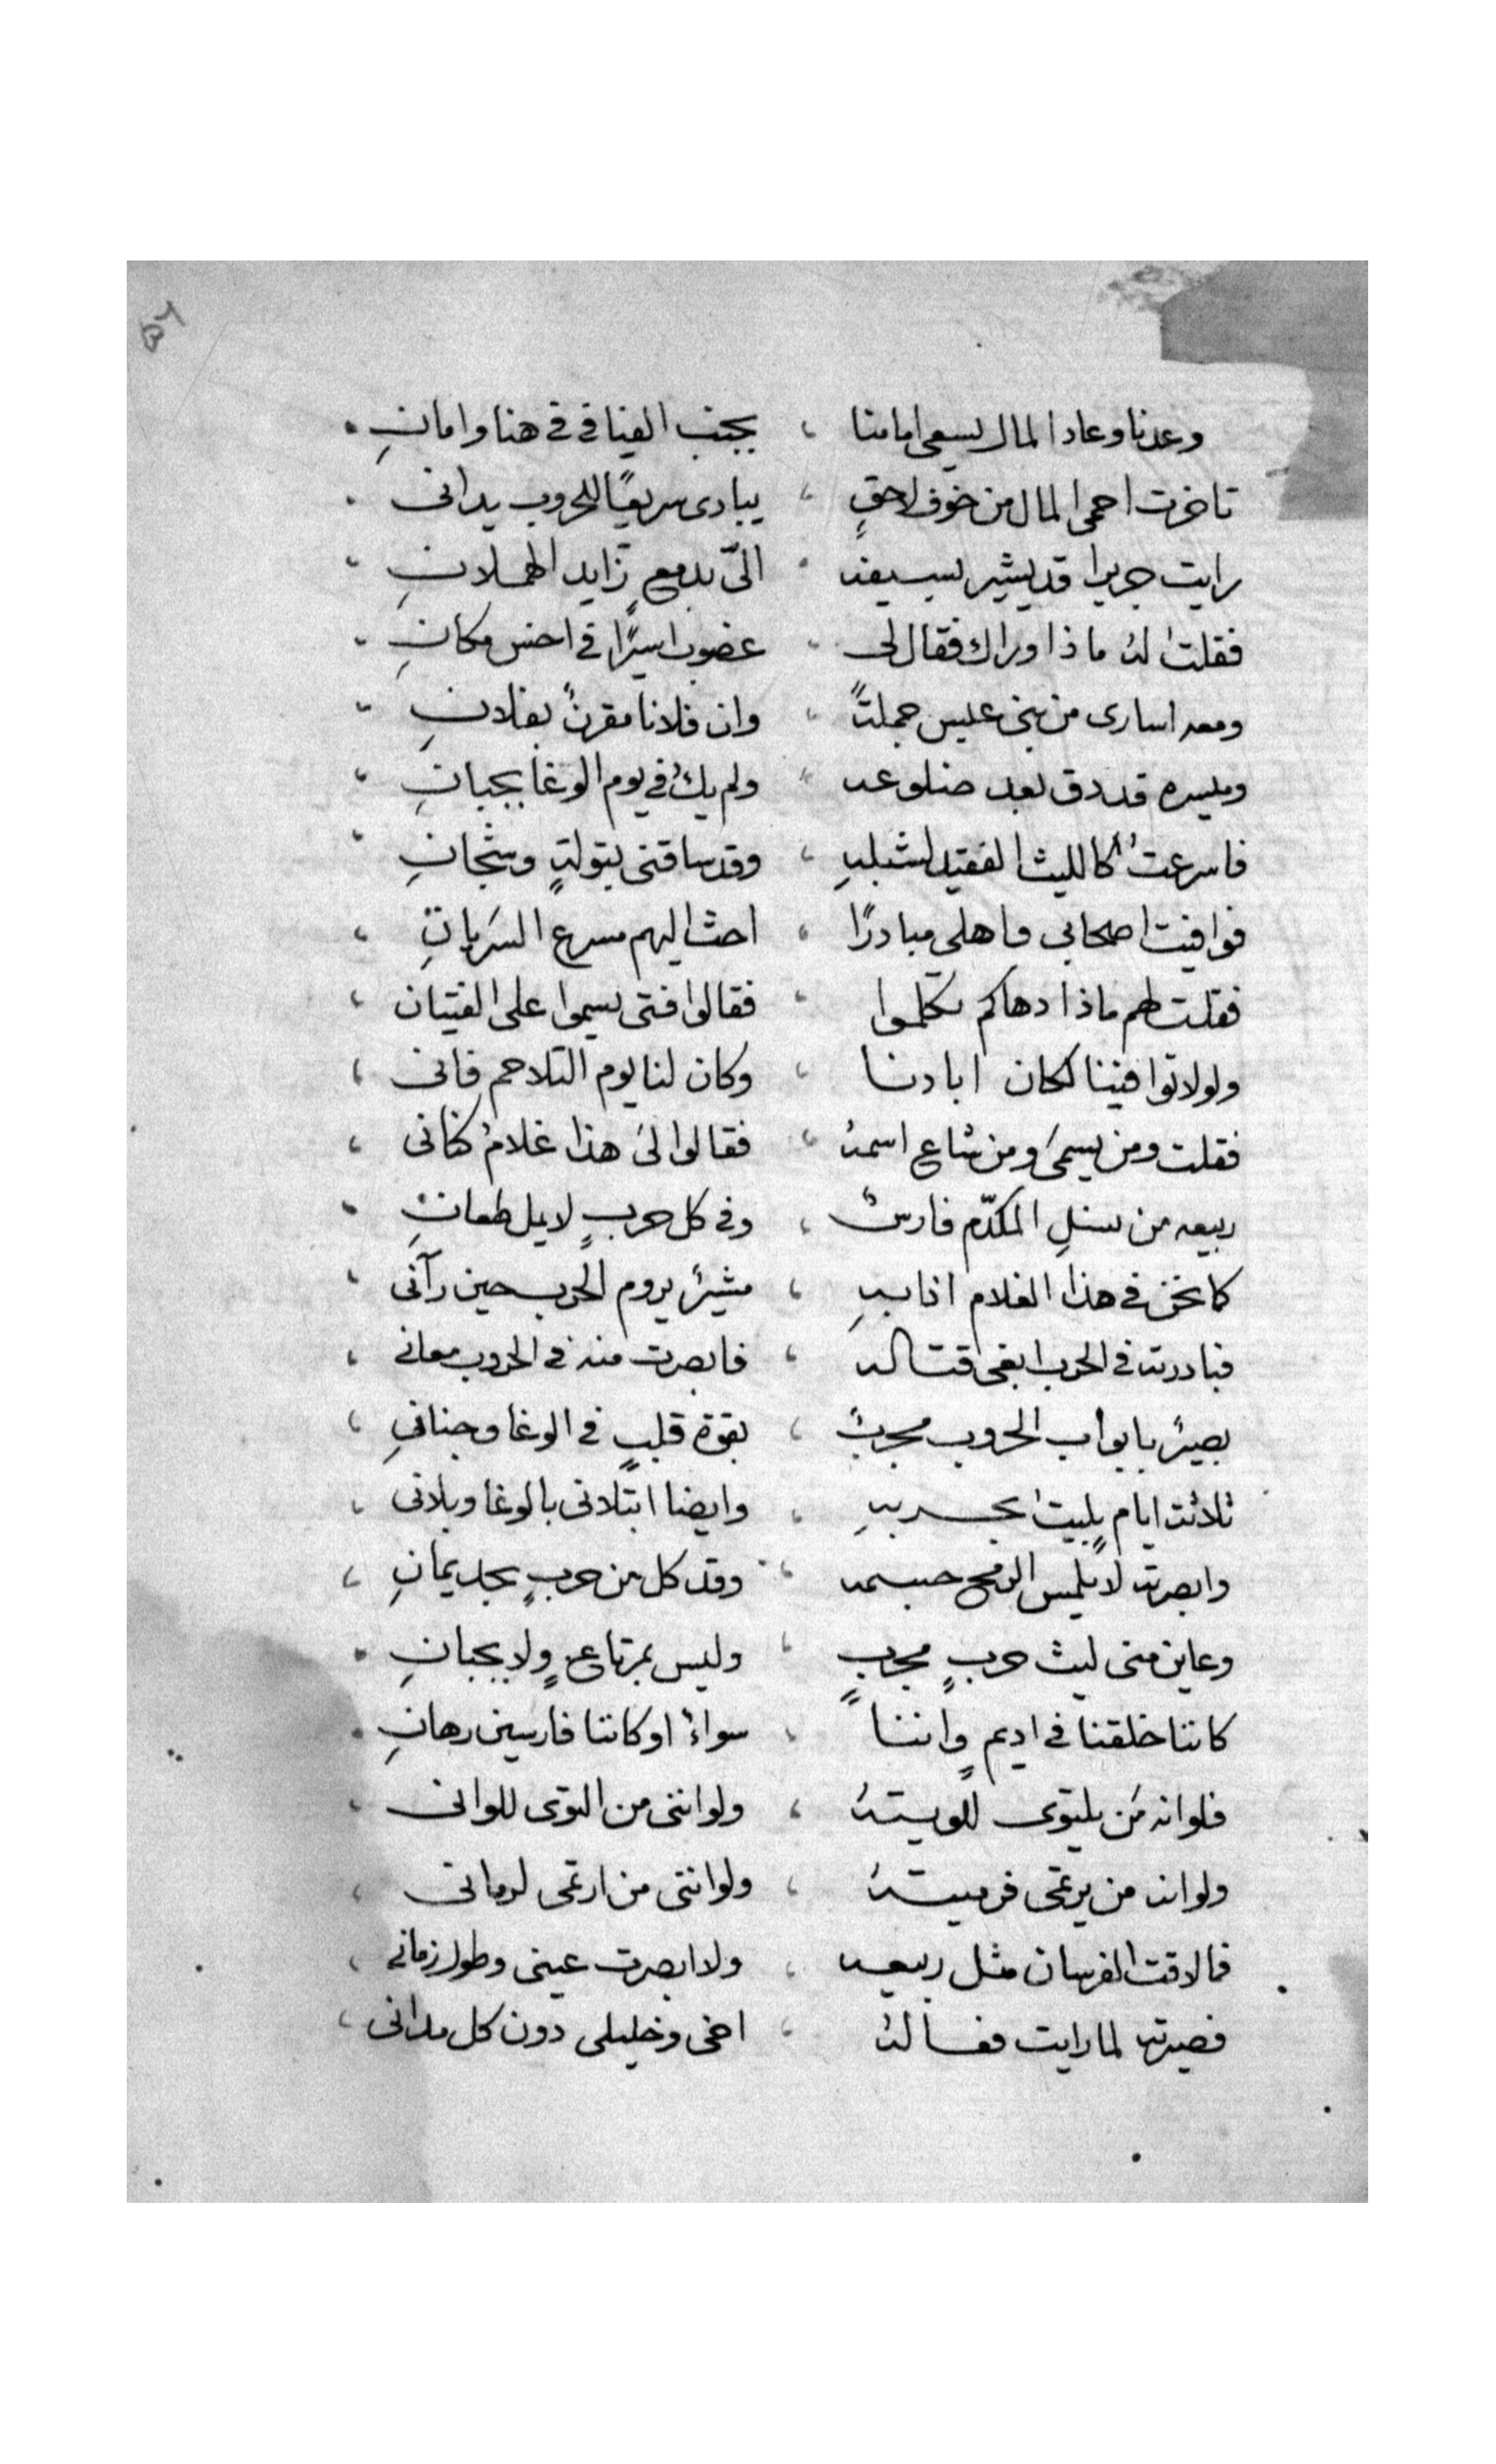 وعدنا وعاد المال يسعى امامنا ، بجنب الفيافي في هنا وامانِ
تاخرت احمى المال من خوف لاحقٍ ، يبادى سريعًا للحروب يدانى
رايت جريرا قد يشير بسيفه ، الىّ بدمعٍ زايد الهملانِ
فقلت لهُ ماذا وراك فقال لى ، غضوب اسيرًا في اخس مكانِ
ومعه اسارى من بنى عبس جملتًا ، وان فلانا مقرنٌ بفلانِ
وميسره قد دق بعد ضلوعه ، ولم يكُ في يوم الوغا بجبانِ
فاسرعتُ كالليث الفقيد لشبلهِ ، وقد ساقنى بتولةٍ وشجانِ
فوافيت اصحابى واهلى مبادرًا ، احث اليهم مسرع السَريانِ
فقلت لهم ماذا دهاكم تكلموا ، فقالوا فتى يسموا على الفتيان
ولولا توافينا لكان ابادنا ، وكان لنا يوم التلاحم فانى
فقلت ومن يسمىَ ومن شاع اسمهُ ، فقالوا لىَ هذا غلامُ كنانى
ربيعه من نسلِ المكدّم فارسٌ ، وفى كل حربٍ لا يمل طعانِ
كما نحن في هذا الغلام اذا بهِ ، مشيرٌ يروم الحرب حين رآنى
فبادرته في الحرب ابغى قتاله ، فابصرت منه في الحروب معانى
بصيرٌ بابواب الحروب مجربٌ ، بقوة قلبٍ في الوغا وجنانى
ثلاثت ايامٍ بليت بحربهِ ، وايضا ابتلانى بالوغا وبلانى
وابصرته لا يلمس الرمح جسمه ، وقد كل من حربٍ بحد يمانِ
وعاين منى ليث حربٍ مجربٍ ، وليس بمرتاعٍ ولا بجبانِ
كاننا خلقنا في اديمٍ واننا ، سواءُ او كاننا فارسين رهانِ
فلوانه مَن يلتوى للويتهُ ، ولواننى من التوى للوانى
ولوانه من يرتمى فرميتهُ ، ولواننى من ارتمى لرمانى
فما لاقت الفرسان مثل ربيعه ، ولا ابصرت عينى وطول زمانى
فصيرته لما رايت فعالهُ ، اخى وخليلى دون كل مدانى